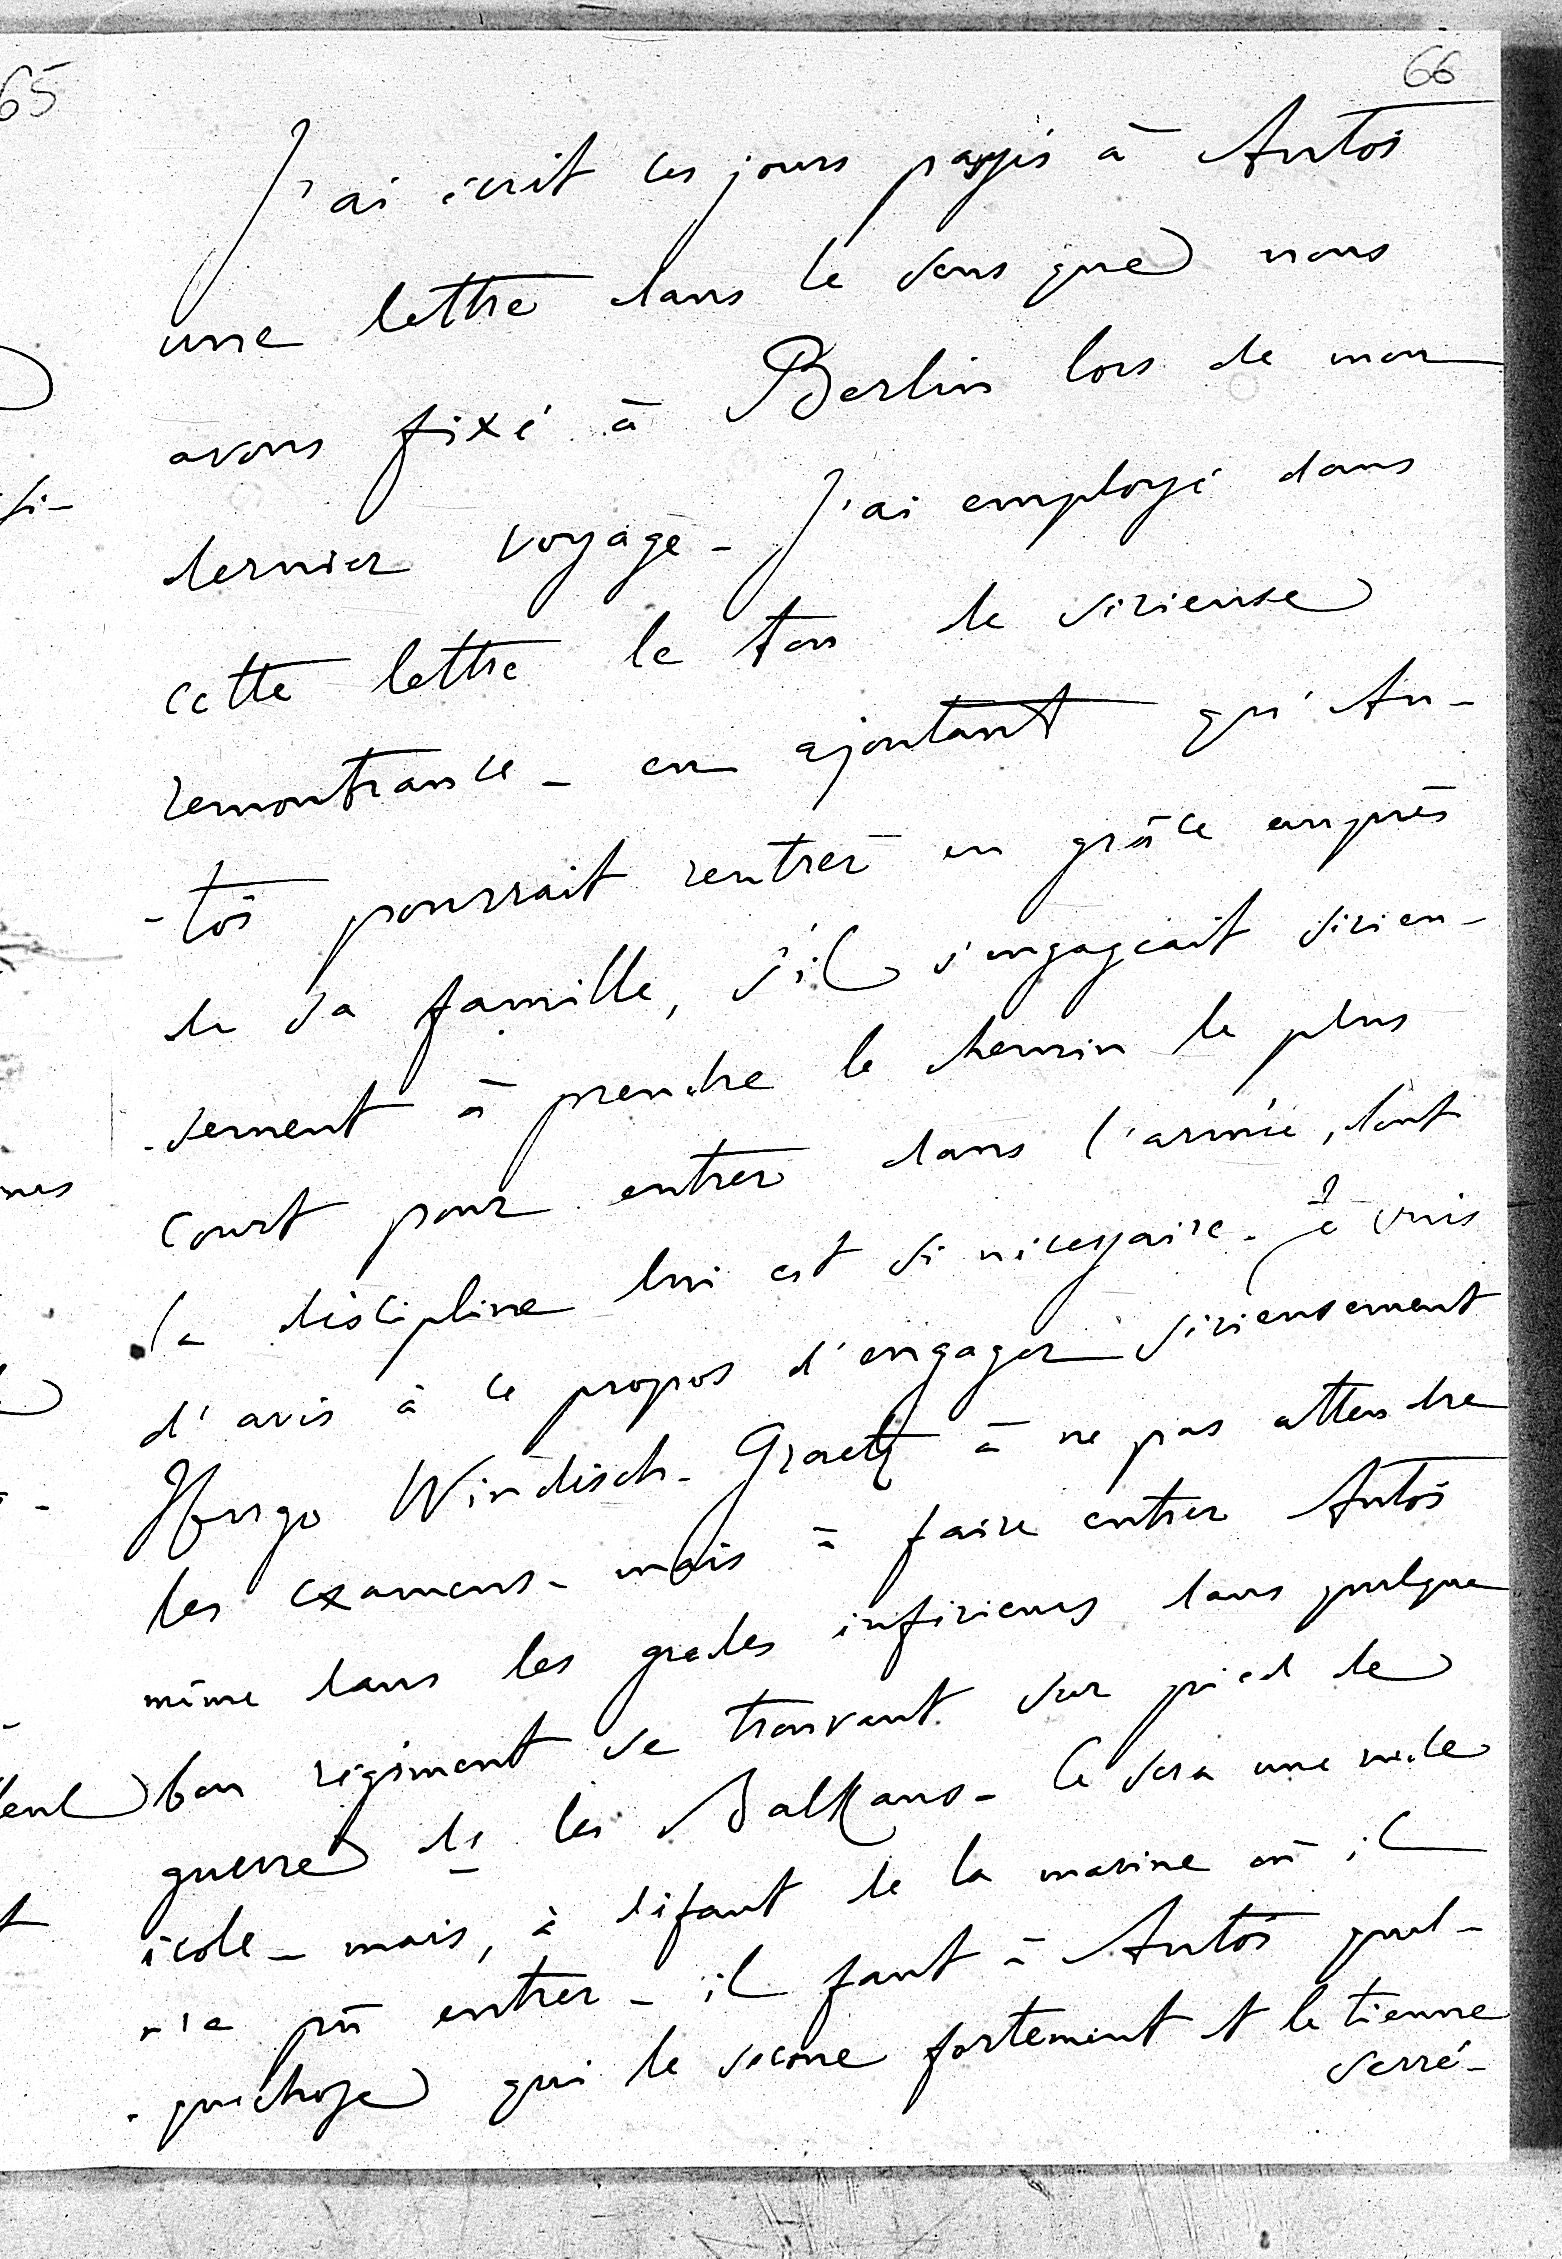 65
66
J'ai écrit ces jours passés à Antos
une lettre dans le sens que nous
avons fixé à Berlin lors de mon
dernier voyage - J'ai employé dans
cette lettre le ton de sérieuse
remontrance - en ajoutant qu'An-
-tos pourrait rentrer en grâce auprès
de sa famille, s'il s'engageait sérieu-
-sement à prendre le chemin le plus
court pour entrer dans l'armée, dont
la discipline lui est si nécessaire. Je suis
d'avis à ce propos d'engager sérieusement
Hugo Windisch-Graetz à ne pas attendre
les examens - mais à faire entrer Antos
même dans les grades inférieurs dans quelque
bon régiment se trouvant sur pied de
guerre ds les Balkans - Ce sera une rude
école - mais, à défaut de la marine où il
n'a pû entrer - il faut à Antos quel-
-quechose qui le secoue fortement et le tienne
serré -